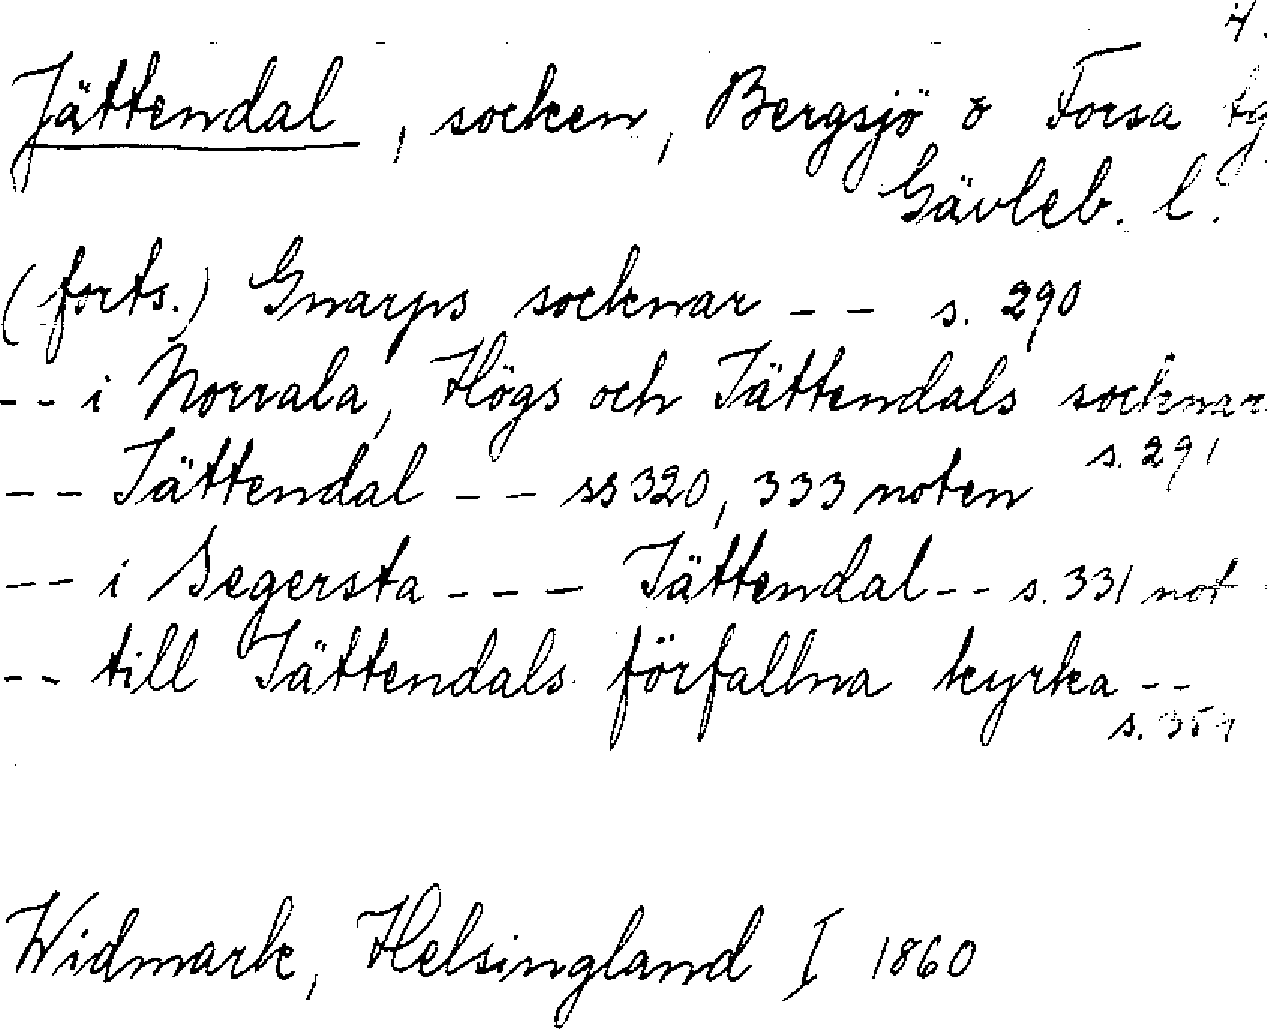 4.
Jättendal, socken, Bergsjö & Forsa tg
Gävleb. l.
(forts.) Gnarps socknar -- s. 290
-- i Norrala, Högs och Jättendals socknar
s. 291
-- Jättendal -- ss 320, 333 noten
-- i Segersta --- Jättendal -- s. 331 not
-- till Jättendals förfallna kyrka --
s. 354
Widmark, Helsingland I 1860